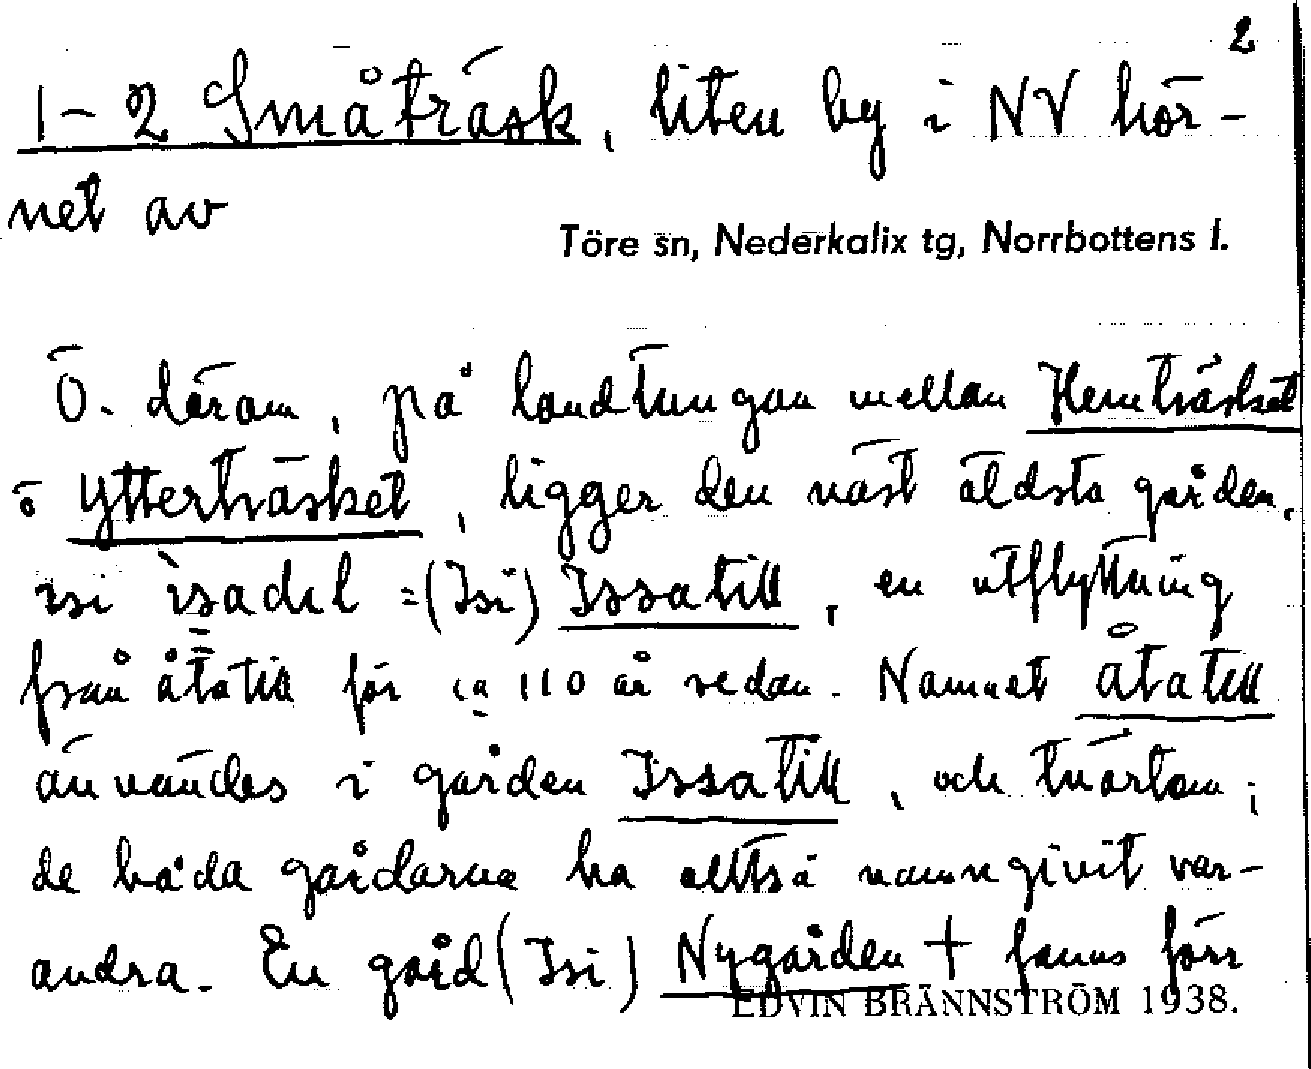 2
1-2 Småträsk, liten by i NV hör-
net av
Töre sn, Nederkalix tg, Norrbottens l.
Ö. därom, på landtungan mellan Hemträsket
o Ytterträsket, ligger den näst äldsta gården,
isi isadel =(Isi) Issatill, en utflyttning
från åtatill för ca 110 år sedan. Namnet Åtatill
användes i gården Issatill, och tvärtom;
de båda gårdarna ha alltså namngivit var-
andra. En gård (Isi) Nygården + fanns förr
EDVIN BRÄNNSTRÖM 1938.